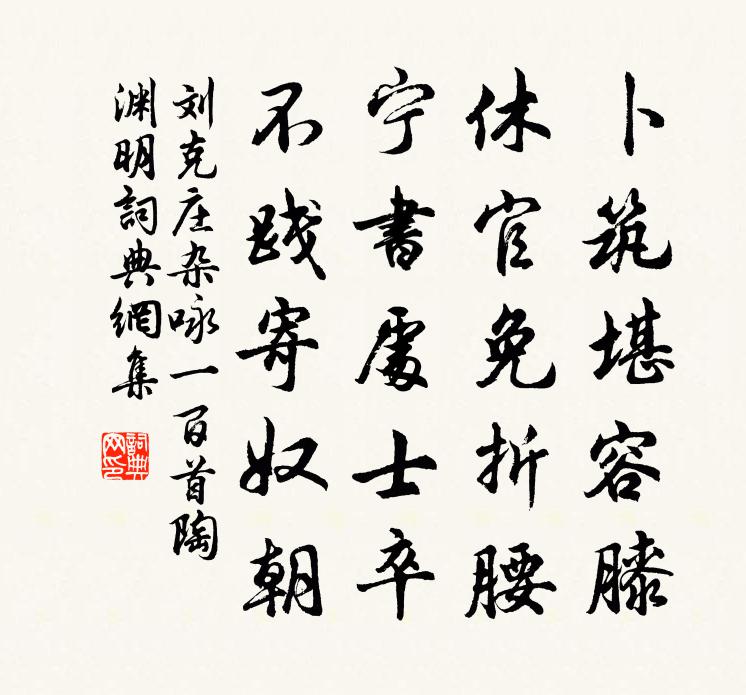 卜筑堪容膝
休官免折腰
宁書處士卒
不践寄奴朝
刘克庄杂咏一百首陶
渊明詞典網集
詞典
网印